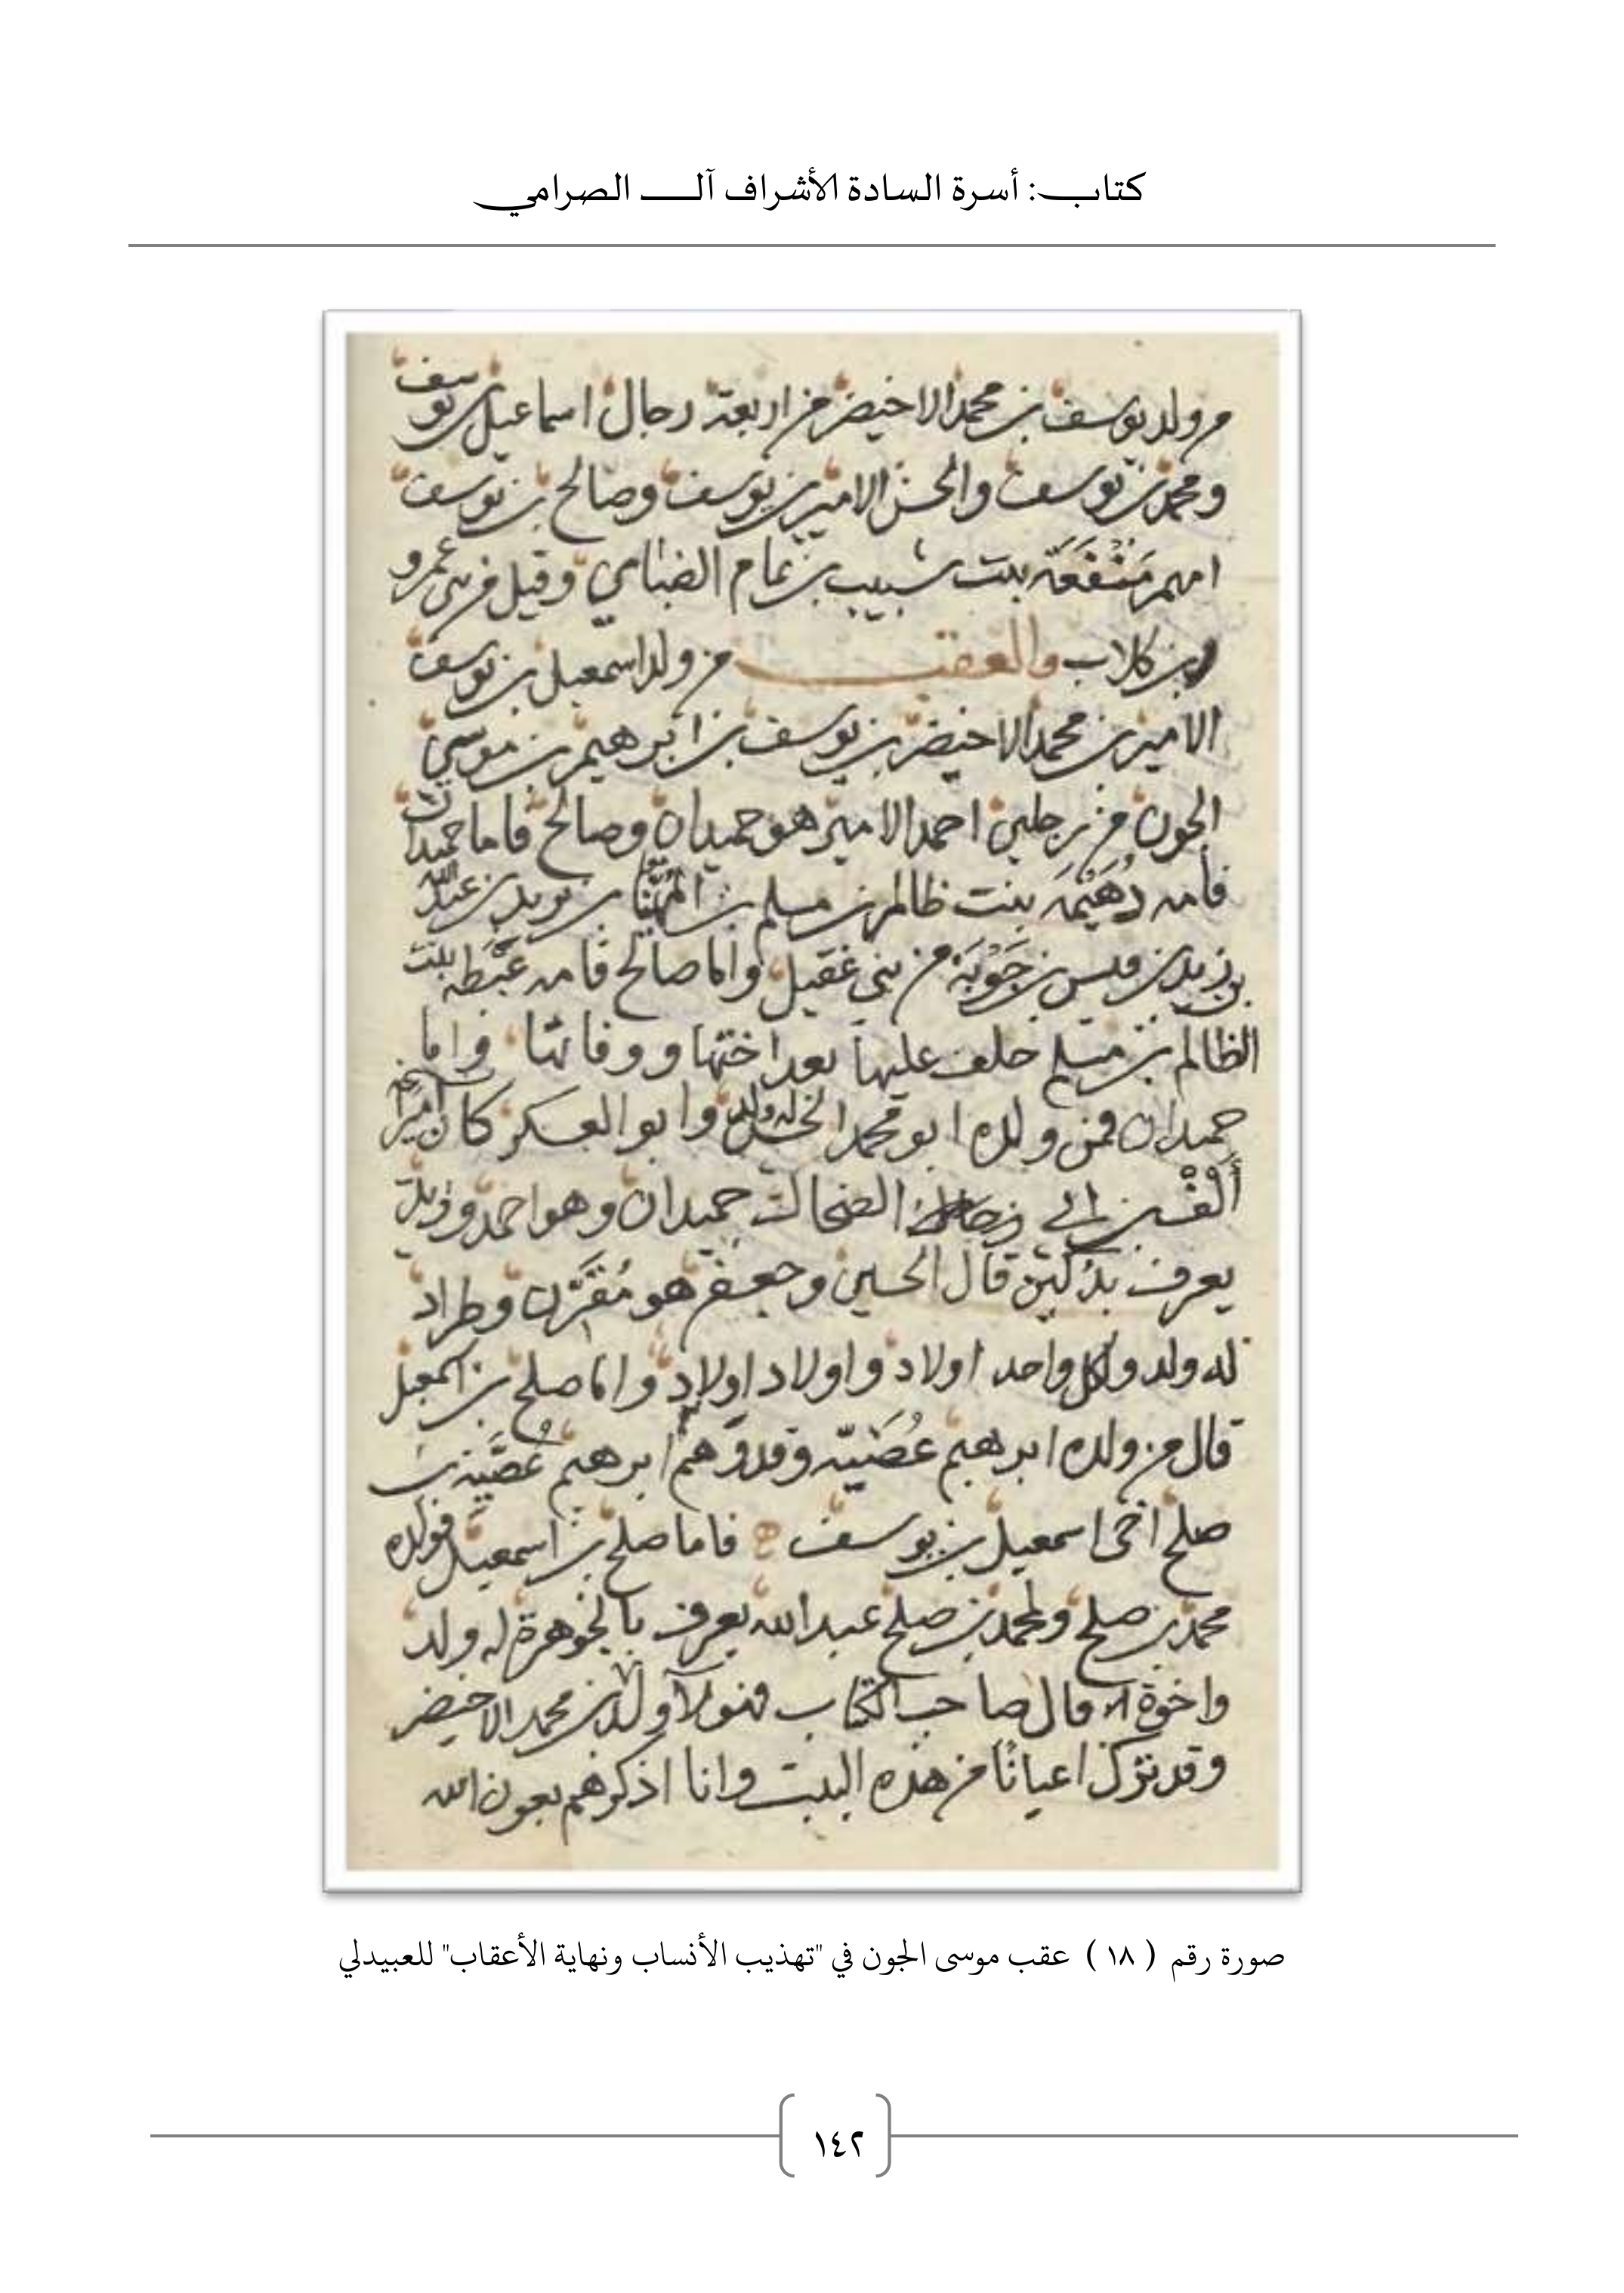 كتاب: أسرة السادة الأشراف آل الصرامي
من ولد يوسف بن محمد الاخيضر من اربعة رجال اسماعيل بن يوسف
ومحمد بن يوسف والحسن الامير بن يوسف وصالح بن يوسف
امهم منفعة بنت شبيب بن تمام الضبابي وقيل من بني عمرو
بن كلاب والعقب من ولد اسمعيل بن يوسف
الامير بن محمد الاخيضر بن يوسف بن ابرهيم بن موسى
الجون من رجلين احمد الامير هو حميدان وصالح فاما حميدان
فأمه دهيمة بنت ظالم بن مسلم بن المهنا بن بن عبد الله
بن قيس بن جوبة من بني عقيل واما صالح فامه غبطه بنت
الظالم بن مسلم خلف عليها بعد اختها ووفاتها واما
حميدان فمن ولده ابو محمد الحسن له ولد وابو العسكر كان اميرا
الضحاك حميدان وهو احمد
يعرف قال الحسين وجعفر هو مقرن وطراد
له ولد ولكل واحد اولاد واولاد اولاد واما صلح بن اسمعيل
قال من ولده ابرهيم عضية وقد وهم ابرهيم عضية بن
صلح اخي اسمعيل بن يوسف فاما صلح بن اسمعيل فولده
محمد بن صلح ولمحمد بن صلح عبد الله يعرف بالجوهرة له ولد
واخوة قال صاحب الكتاب فهولآ ولد بن محمد الاخيضر
وقد ترك اعيانا من هذه البيت وانا اذكرهم بعون الله
صورة رقم ( ١٨ ) عقب موسى الجون في "تهذيب الأنساب ونهاية الأعقاب" للعبيدلي
١٤٢